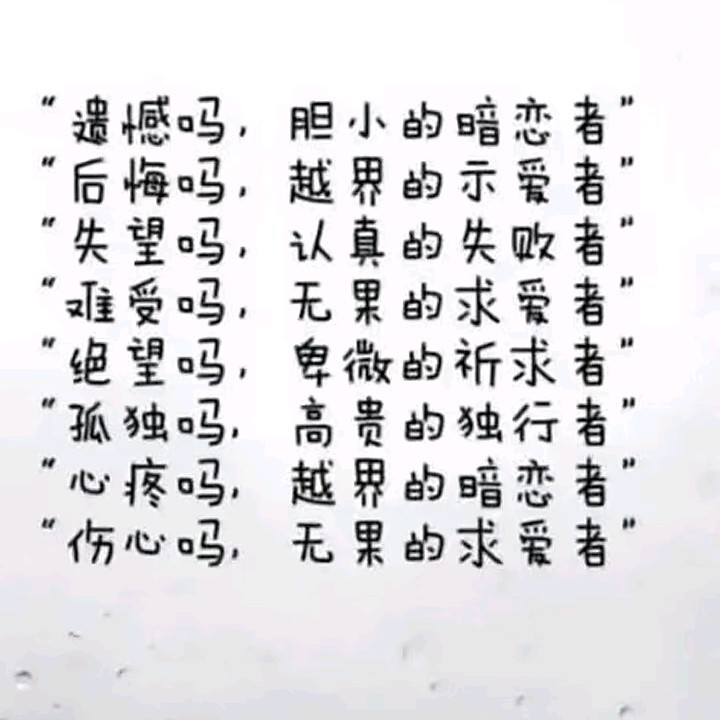 “遗憾吗，胆小的暗恋者”
“后悔吗，越界的示爱者”
“失望吗，认真的失败者”
“难受吗，无果的求爱者”
“绝望吗，卑微的祈求者”
“孤独吗，高贵的独行者”
“心疼吗，越界的暗恋者”
“伤心吗，无果的求爱者”